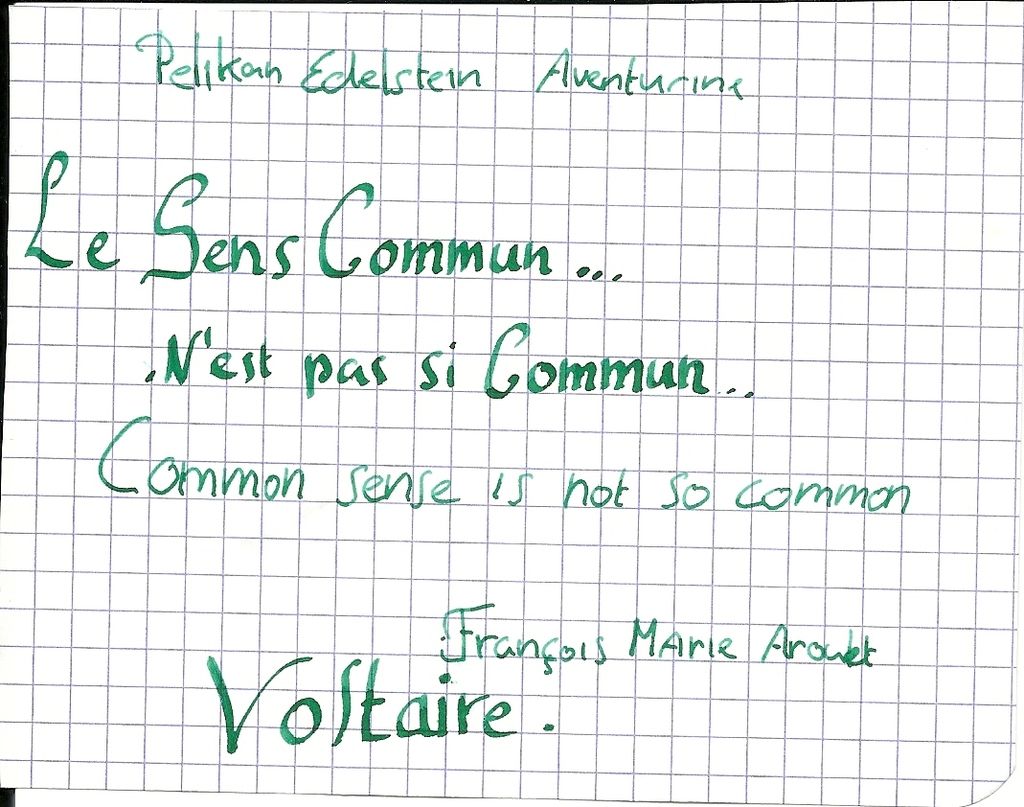 Pelikan Edelstein Aventurine
Le Sens Commun...
.N'est pas si Commun...
Common sense is not so common
François MArie Arouet
Voltaire.